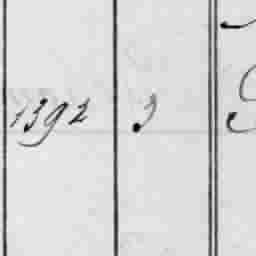 1392 9